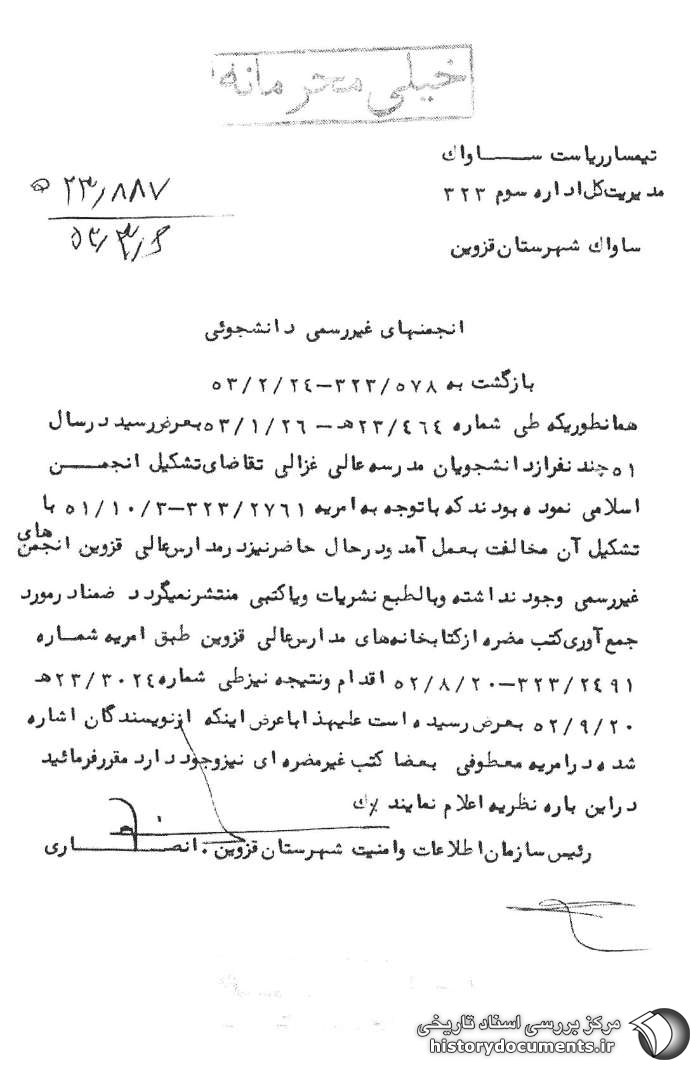 خیلی محرمانه
تیمسار ریاست ســـاواک
مدیریت کل اداره سوم ۳۲۳
۲۳/۸۸۷
ساواک شهرستان قزوین
انجمنهای غیررسمی دانشجوئی
بازگشت به ۳۲۳/۵۷۸–۵۳/۲/۲۴
همانطوریکه طی شماره ۲۳/۴۶۴هـ – ۵۳/۱/۲۶ بعرض رسید در سال
۵۱ چند نفر از دانشجویان مدرسه عالی غزالی تقاضای تشکیل انجمـــن
اسلامی نموده بودند که با توجه به امریه ۳۲۳/۲۷۶۱–۵۱/۱۰/۳ با
تشکیل آن مخالفت بعمل آمد و در حال حاضر نیز در مدارس عالی قزوین انجمن های
غیررسمی وجود نداشته و بالطبع نشریات و یا کتبی منتشر نمیگردد ضمنا در مورد
جمع آوری کتب مضره از کتابخانه های مدارس عالی قزوین طبق امریه شمـاره
۳۲۳/۲۴۹۱–۵۲/۸/۲۰ اقدام و نتیجه نیز طی شماره ۲۳/۳۰۲۴هـ
۵۲/۹/۲۰ بعرض رسیده است علیهذا با عرض اینکه از نویسندگان اشاره
شده در امریه معطوفی بعضا کتب غیر مضره ای نیز وجود دارد مقرر فرمائید
در این باره نظریه اعلام نمایند /ک
رئیس سازمان اطلاعات و امنیت شهرستان قزوین . انصـــــاری
مرکز بررسی اسناد تاریخی
historydocuments.ir